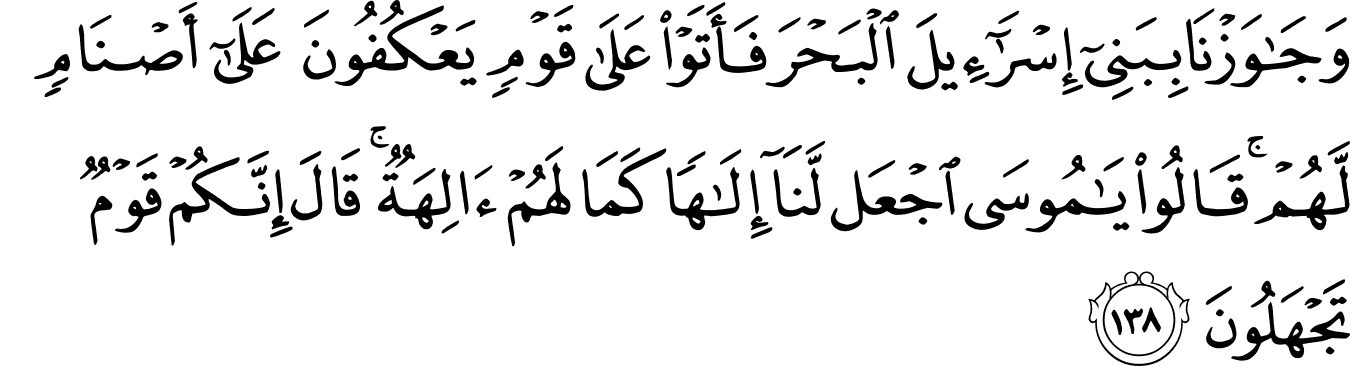 وَجَـٰوَزْنَا بِبَنِىٓ إِسْرَٰٓءِيلَ ٱلْبَحْرَ فَأَتَوْا۟ عَلَىٰ قَوْمٍ يَعْكُفُونَ عَلَىٰٓ أَصْنَامٍ
لَّهُمْ ۚ قَالُوا۟ يَـٰمُوسَى ٱجْعَل لَّنَآ إِلَـٰهًا كَمَا لَهُمْ ءَالِهَةٌ ۚ قَالَ إِنَّكُمْ قَوْمٌ
تَجْهَلُونَ ١٣٨